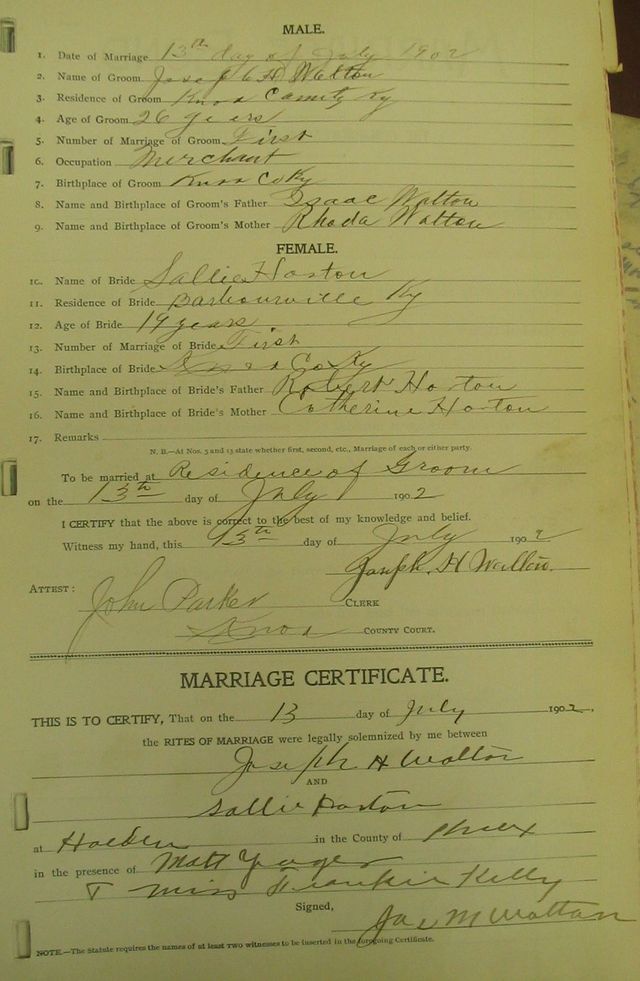 MALE.
1. Date of Marriage 13th day of July 1902
2. Name of Groom Joseph H Walton
3. Residence of Groom Knox County Ky
4. Age of Groom 26 years
5. Number of Marriage of Groom First
6. Occupation Merchant
7. Birthplace of Groom Knox Co Ky
8. Name and Birthplace of Groom's Father Isaac Walton
9. Name and Birthplace of Groom's Mother Rhoda Walton
FEMALE.
10. Name of Bride Sallie Horton
11. Residence of Bride Barbourville Ky
12. Age of Bride 19 years
13. Number of Marriage of Bride First
14. Birthplace of Bride Knox Co Ky
15. Name and Birthplace of Bride's Father Robert Horton
16. Name and Birthplace of Bride's Mother Catherine Horton
17. Remarks
N. B.—At Nos. 5 and 13 state whether first, second, etc., Marriage of each or either party.
To be married at Residence of Groom
on the 13th day of July 1902
I CERTIFY that the above is correct to the best of my knowledge and belief.
Witness my hand, this 13th day of July 1902
Joseph. H Walton.
ATTEST:
John Parker CLERK
Knox COUNTY COURT.
MARRIAGE CERTIFICATE.
THIS IS TO CERTIFY, That on the 13 day of July 1902.
the RITES OF MARRIAGE were legally solemnized by me between
Joseph H Walton
AND
Sallie Horton
at in the County of Knox
in the presence of Matt
& Miss Frankie Kelly
Signed,
Jas M Walton
NOTE.—The Statute requires the names of at least TWO witnesses to be inserted in the foregoing Certificate.